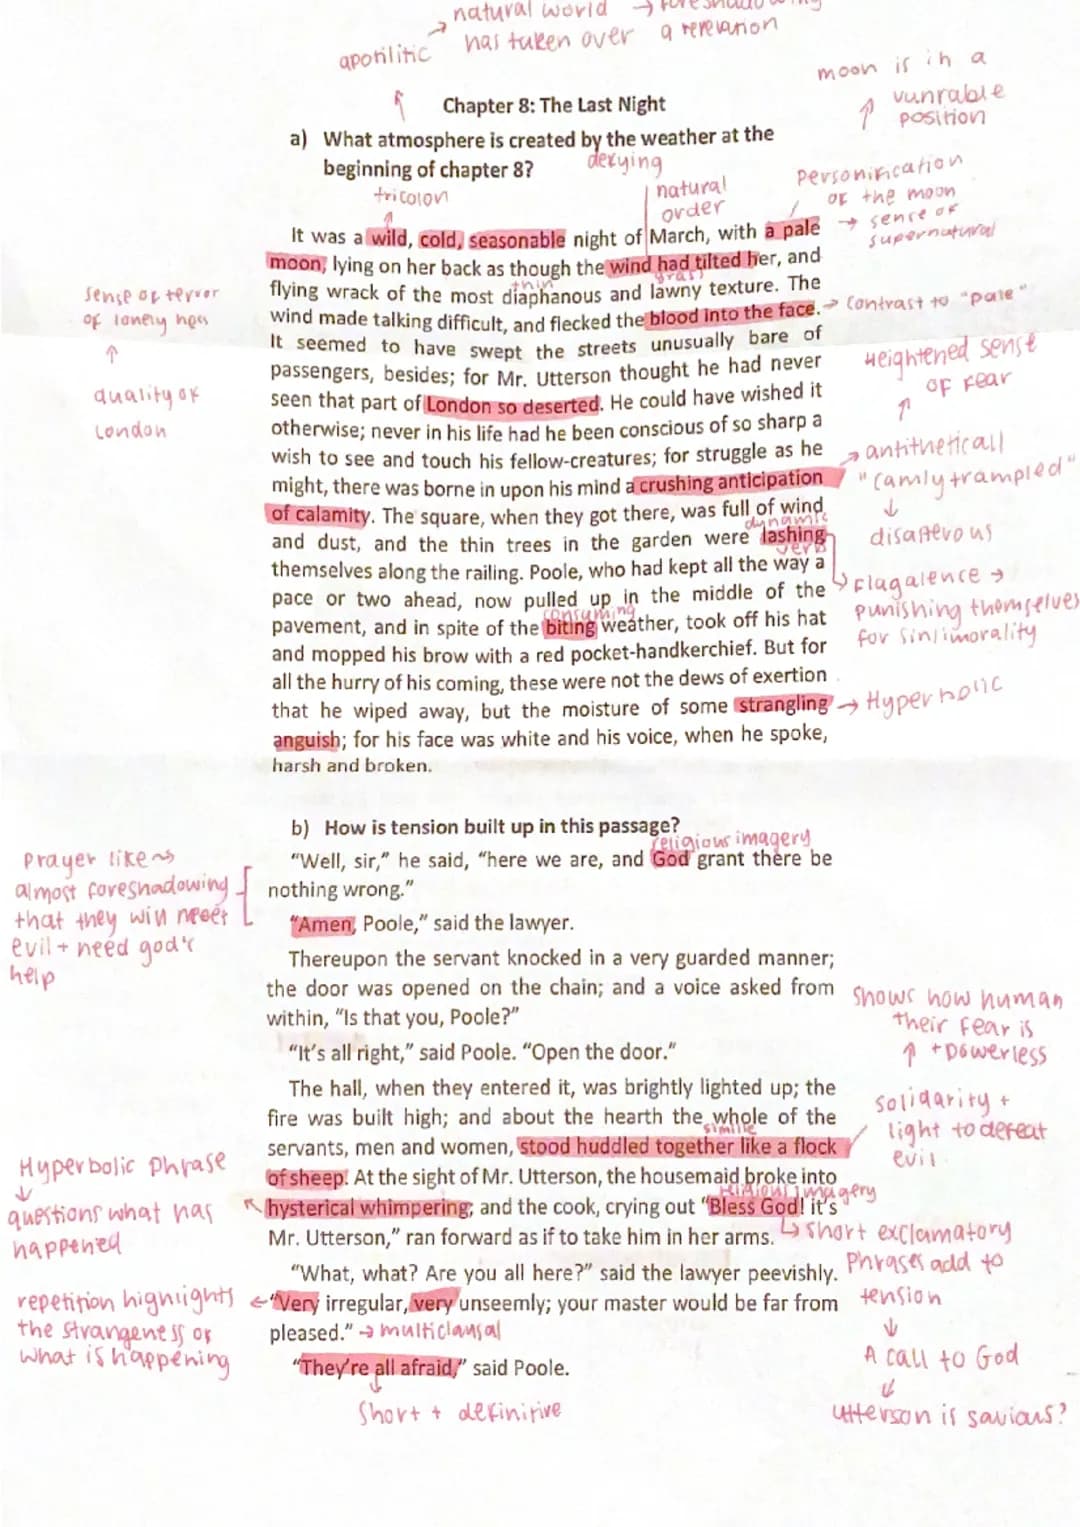 natural world → foreshadowing
has taken over a revelation
moon is in a
vunrable
position
Chapter 8: The Last Night
a) What atmosphere is created by the weather at the
beginning of chapter 8?
defying
natural
order
tricolon
Personification
of the moon
→ sense of
supernatural
It was a wild, cold, seasonable night of March, with a pale
moon, lying on her back as though the wind had tilted her, and
thin
flying wrack of the most diaphanous and lawny texture. The
wind made talking difficult, and flecked the blood into the face. → Contrast to "pale"
It seemed to have swept the streets unusually bare of
passengers, besides; for Mr. Utterson thought he had never
seen that part of London so deserted. He could have wished it
otherwise; never in his life had he been conscious of so sharp a
wish to see and touch his fellow-creatures; for struggle as he
might, there was borne in upon his mind a crushing anticipation
of calamity. The square, when they got there, was full of wind
dynamic
verb
and dust, and the thin trees in the garden were lashing
themselves along the railing. Poole, who had kept all the way a
pace or two ahead, now pulled up in the middle of the
consuming
pavement, and in spite of the biting weather, took off his hat
and mopped his brow with a red pocket-handkerchief. But for
all the hurry of his coming, these were not the dews of exertion
that he wiped away, but the moisture of some strangling → Hyperbolic
anguish; for his face was white and his voice, when he spoke,
harsh and broken.
sense of terror
of lonely
↑
quality of
London
Heightened sense
of fear
↑
→ antitheticall
"camly trampled"
↓
disasterous
flagalence →
punishing themselves
for sin/imorality
b) How is tension built up in this passage?
religious imagery
"Well, sir," he said, "here we are, and God grant there be
nothing wrong."
"Amen, Poole," said the lawyer.
Prayer like
almost foreshadowing
that they will meet
evil + need god's
help
Thereupon the servant knocked in a very guarded manner;
the door was opened on the chain; and a voice asked from
within, "Is that you, Poole?"
"It's all right," said Poole. "Open the door."
The hall, when they entered it, was brightly lighted up; the
fire was built high; and about the hearth the whole of the
simile
servants, men and women, stood huddled together like a flock
of sheep. At the sight of Mr. Utterson, the housemaid broke into
religious imagery
hysterical whimpering; and the cook, crying out "Bless God! it's
Mr. Utterson," ran forward as if to take him in her arms.
"What, what? Are you all here?" said the lawyer peevishly.
"Very irregular, very unseemly; your master would be far from
pleased." → multiclausal
"They're all afraid," said Poole.
Short + definitive
Shows how human
their fear is
↑ + powerless
solidarity +
light to defeat
evil
short exclamatory
Phrases add to
tension
↓
A call to God
↓
Utterson is savious?
Hyperbolic Phrase
↓
questions what has
happened
repetition highlights
the strangeness of
what is happening